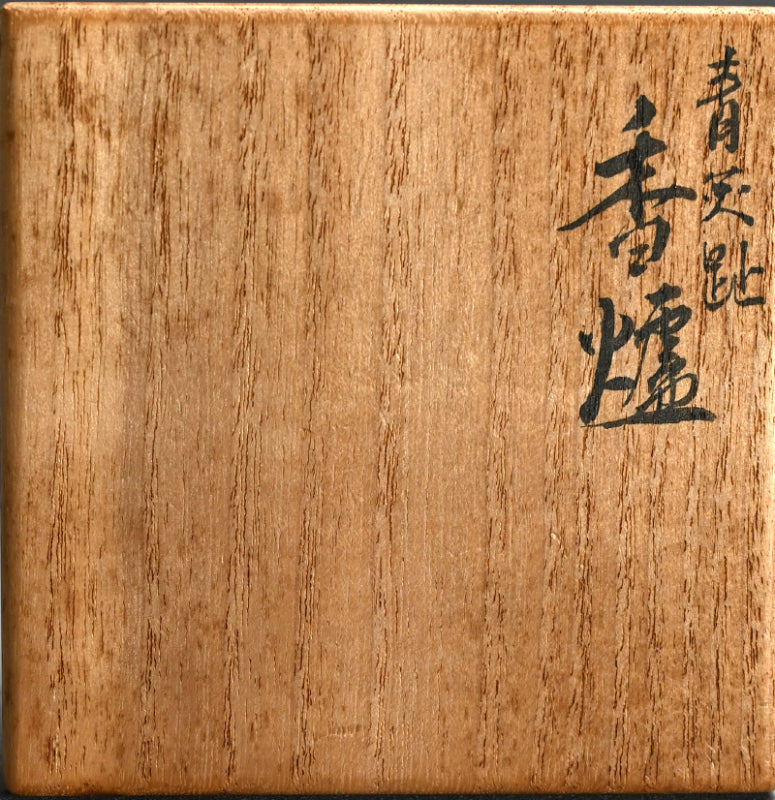 青交趾
香爐